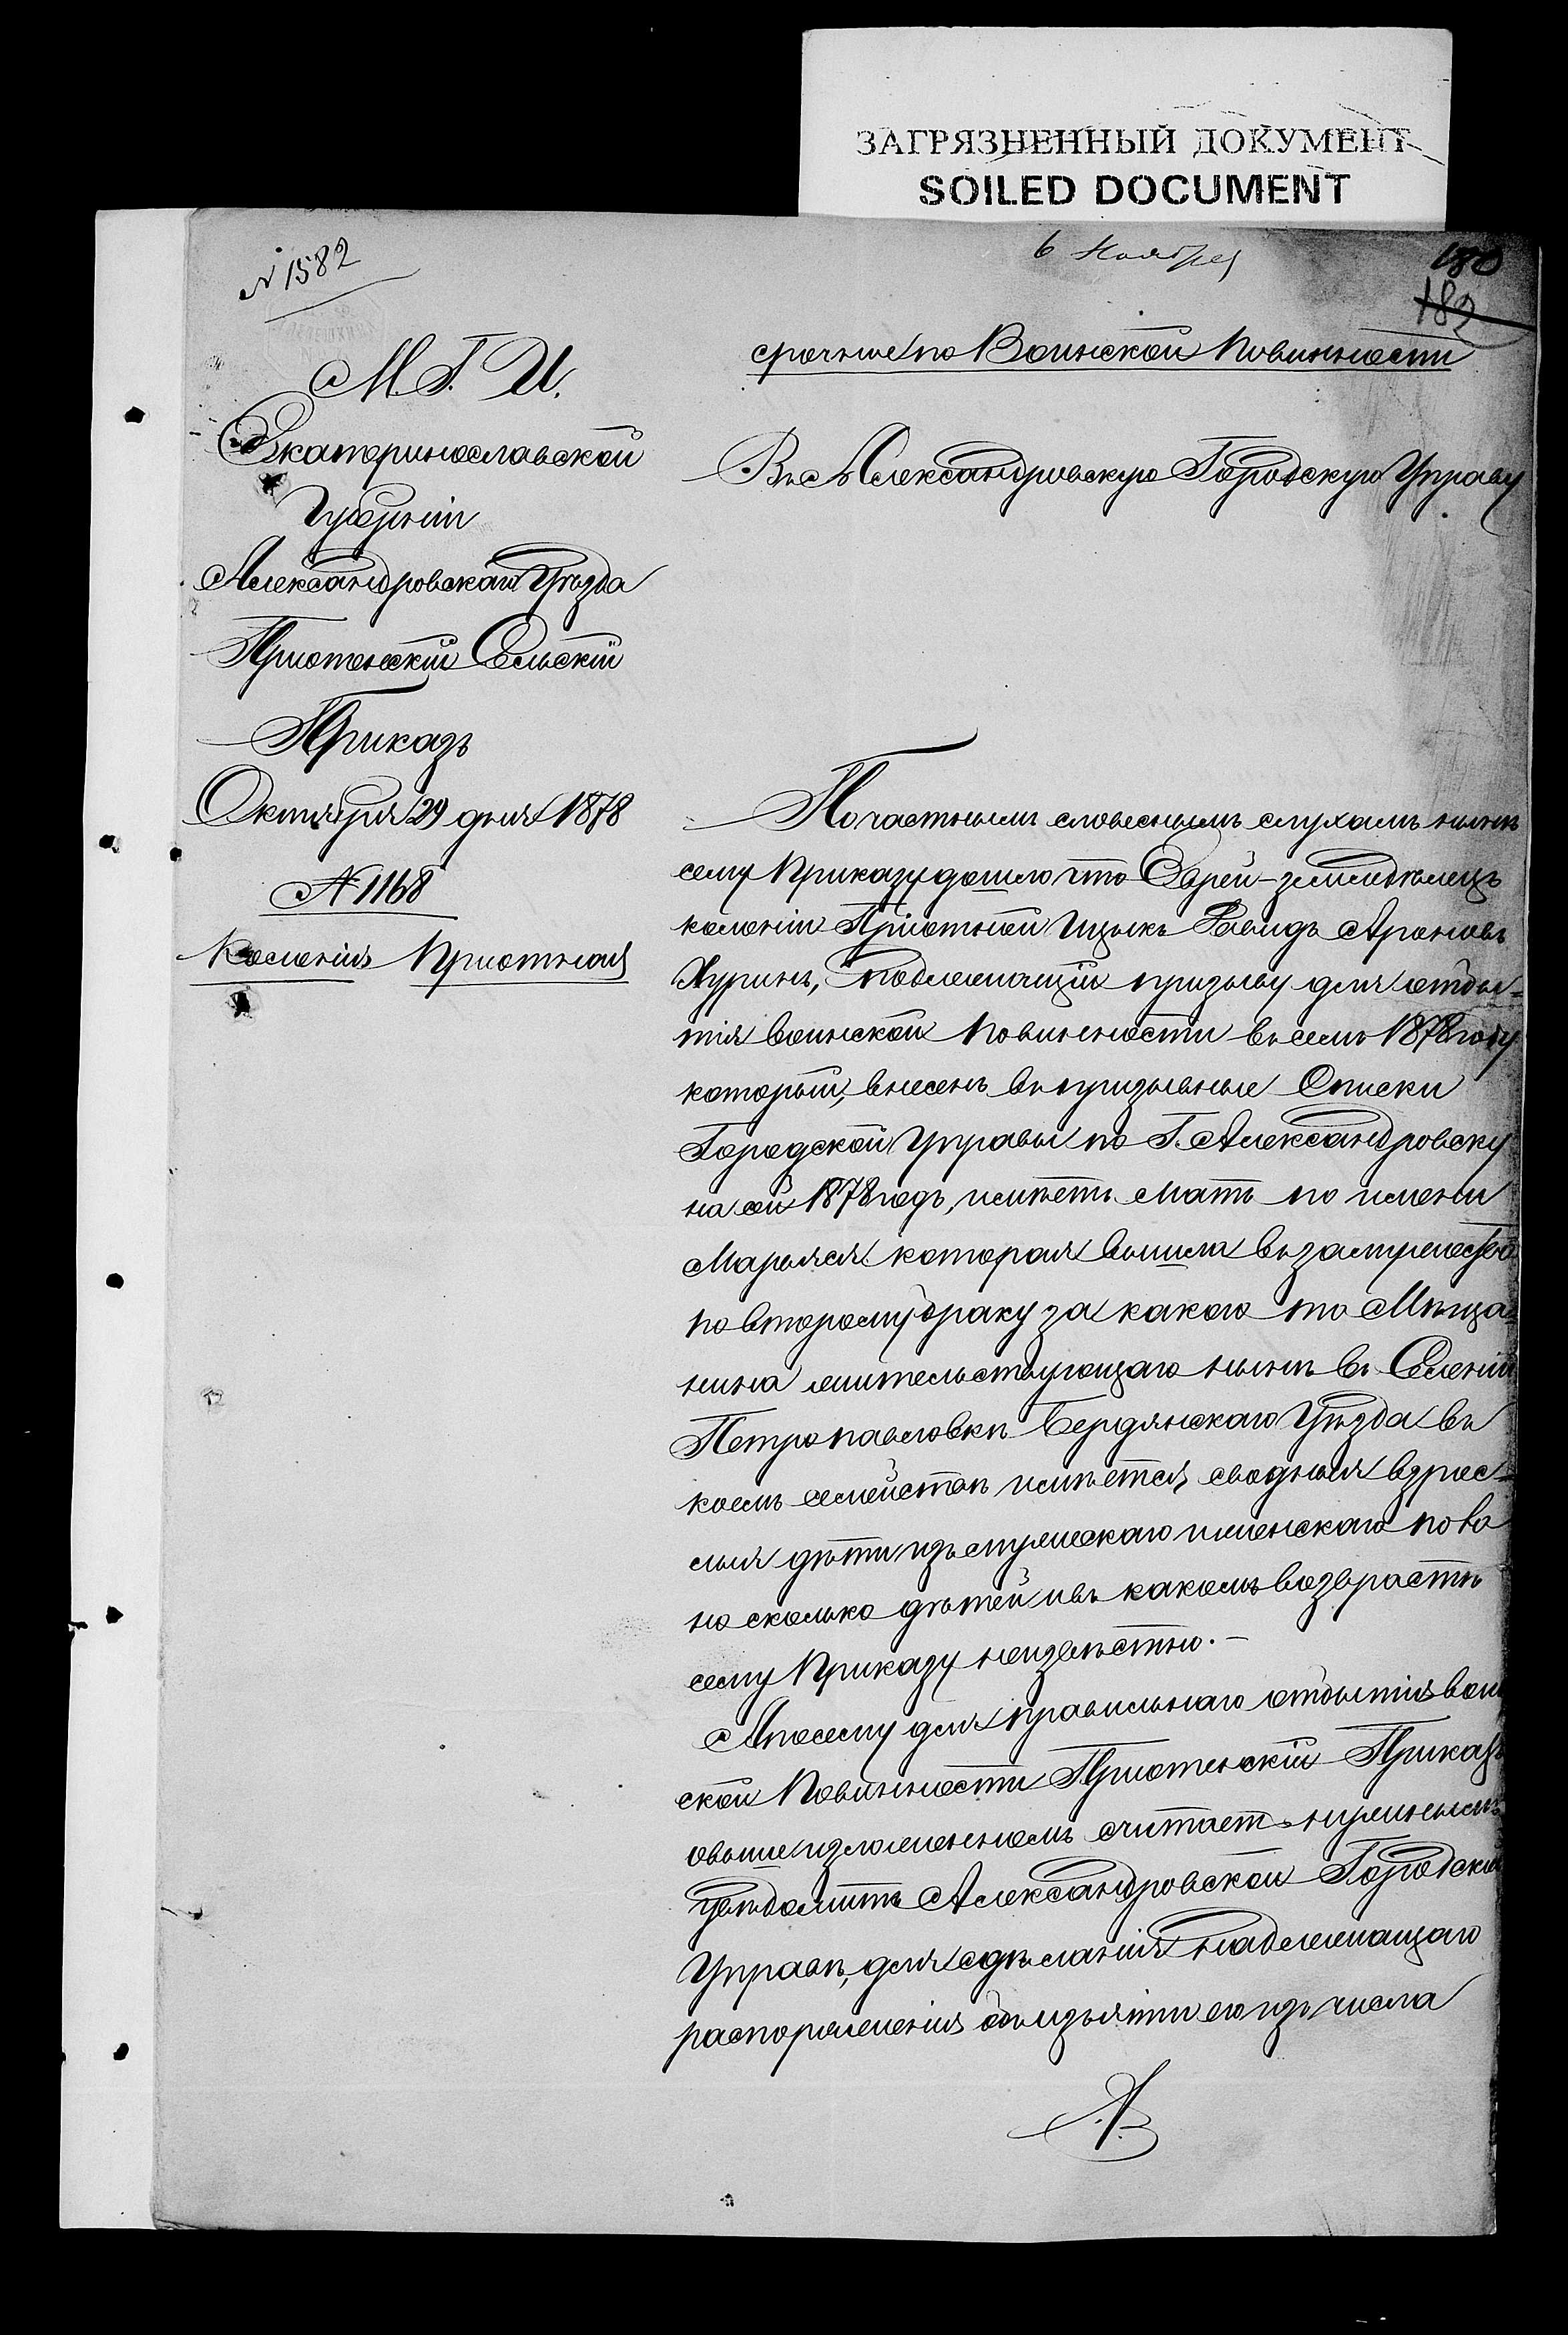 ЗАГРЯЗНЕННЫЙ ДОКУМЕНТ
SOILED DOCUMENT
№ 1582
6 Ноября
180
182
М. Г. И.
Екатеринославской
Губерніи
Александровскаго Уѣзда
Пріютенскій Сельскій
Приказъ
Октября 29 дня 1878
№ 1168
Колонія Пріютная
срочное по Воинской Повинности
Въ Александровскую Городскую Управу
По частнымъ словеснымъ слухамъ нынѣ
сему Приказу дошло что Еврей-земледѣлецъ
колоніи Пріютной Ицыкъ Давидъ Ароновъ
Хуринъ, подлежащій призыву для отбы-
тія воинской повинности въ семъ 1878 году
который, внесенъ въ призывные Списки
Городской Управы по Г. Александровску
на сей 1878 годъ, имѣетъ мать по имени
Марьяся которая вышла въ замужество
по второму браку за какого то Мѣща-
нина жительствующаго нынѣ въ Селеніи
Петропавловкѣ Бердянскаго Уѣзда въ
коемъ семействѣ имѣется сводныя взрос-
лыя дѣти изъ мужескаго и женскаго пола
но сколько дѣтей и въ какомъ возврастѣ
сему Приказу неизвѣстно.-
А посему для правильнаго отбытія воин
ской Повинности Пріютенскій Приказъ
о вышеизложенномъ считаетъ нужнымъ
увѣдомить Александровской Городской
Управѣ, для сдѣланія надлежащаго
распоряженія объ изъятіи его изъ числа